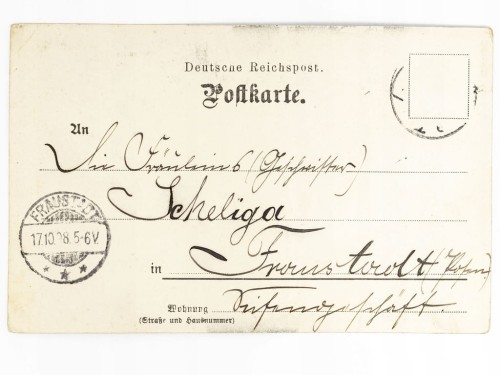 Deutsche Reichspost.
Postkarte.
An
Die Fräuleins (Geschwister)
Scheliga
FRAUSTADT
17.10.98.5-6V.
* * *
in Fraustadt (Posen)
Wohnung Seifengeschäft.
(Straße und Hausnummer)